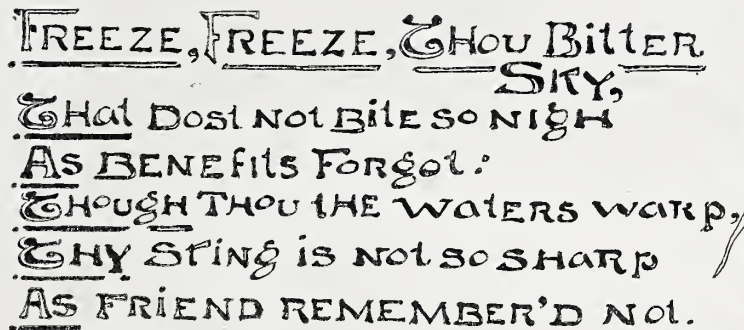 FREEZE, FREEZE, THOU BITTER
SKY,
THAT DOST NOT BITE SO NIGH
AS BENEFITS FORGOT:
THOUGH THOU THE WATERS WARP,
THY STING IS NOT SO SHARP
AS FRIEND REMEMBER'D NOT.